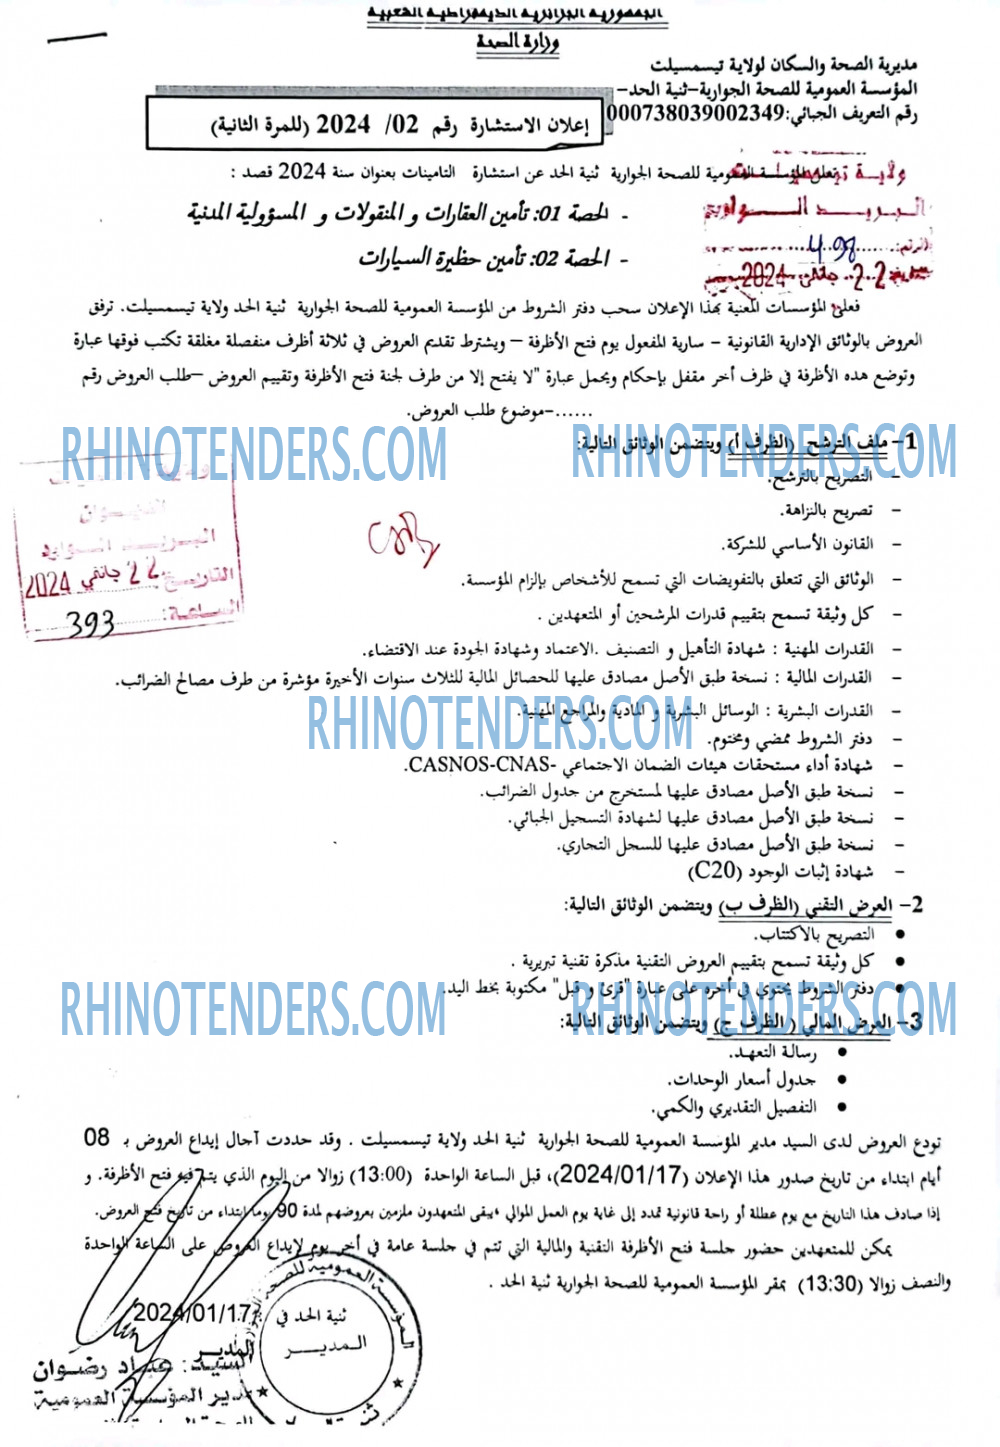 الجمهورية الجزائرية الديمقراطية الشعبية
وزارة الصحة
مديرية الصحة والسكان لولاية تيسمسيلت
المؤسسة العمومية للصحة الجوارية–ثنية الحد–
رقم التعريف الجبائي:000738039002349
إعلان الاستشارة رقم 02/ 2024 (للمرة الثانية)
تعلن المؤسسة العمومية للصحة الجوارية ثنية الحد عن استشارة التامينات بعنوان سنة 2024 قصد :
- الحصة 01: تأمين العقارات و المنقولات و المسؤولية المدنية
- الحصة 02: تأمين حظيرة السيارات
ولاية
البريد الوارد
الرقم: 498
22 جانفي 2024
فعلى المؤسسات المعنية بهذا الإعلان سحب دفتر الشروط من المؤسسة العمومية للصحة الجوارية ثنية الحد ولاية تيسمسيلت. ترفق
العروض بالوثائق الإدارية القانونية – سارية المفعول يوم فتح الأظرفة – ويشترط تقديم العروض في ثلاثة أظرف منفصلة مغلقة تكتب فوقها عبارة
وتوضع هده الأظرفة في ظرف أخر مقفل بإحكام ويحمل عبارة "لا يفتح إلا من طرف لجنة فتح الأظرفة وتقييم العروض –طلب العروض رقم
......–موضوع طلب العروض.
RHINOTENDERS.COM RHINOTENDERS.COM
1– ملف الترشح (الظرف أ) ويتضمن الوثائق التالية:
– التصريح بالترشح.
– تصريح بالنزاهة.
– القانون الأساسي للشركة.
– الوثائق التي تتعلق بالتفويضات التي تسمح للأشخاص بإلزام المؤسسة.
– كل وثيقة تسمح بتقييم قدرات المرشحين أو المتعهدين .
– القدرات المهنية : شهادة التأهيل و التصنيف .الاعتماد وشهادة الجودة عند الاقتضاء.
– القدرات المالية : نسخة طبق الأصل مصادق عليها للحصائل المالية للثلاث سنوات الأخيرة مؤشرة من طرف مصالح الضرائب.
– القدرات البشرية : الوسائل البشرية و المادية والمراجع المهنية.
RHINOTENDERS.COM
– دفتر الشروط ممضي ومختوم.
– شهادة أداء مستحقات هيئات الضمان الاجتماعي -CASNOS-CNAS.
– نسخة طبق الأصل مصادق عليها لمستخرج من جدول الضرائب.
– نسخة طبق الأصل مصادق عليها لشهادة التسجيل الجبائي.
– نسخة طبق الأصل مصادق عليها للسجل التجاري.
– شهادة إثبات الوجود (C20)
الديوان
البريد الوارد
التاريخ: 22 جانفي 2024
الساعة: 393
2– العرض التقني (الظرف ب) ويتضمن الوثائق التالية:
• التصريح بالاكتتاب.
• كل وثيقة تسمح بتقييم العروض التقنية مذكرة تقنية تبريرية .
• دفتر الشروط يحتوي في أخره على عبارة "قرئ و قبل" مكتوبة بخط اليد.
RHINOTENDERS.COM RHINOTENDERS.COM
3– العرض المالي ( الظرف ج) ويتضمن الوثائق التالية:
• رسالة التعهد.
• جدول أسعار الوحدات.
• التفصيل التقديري والكمي.
تودع العروض لدى السيد مدير المؤسسة العمومية للصحة الجوارية ثنية الحد ولاية تيسمسيلت . وقد حددت آجال إيداع العروض بـ 08
أيام ابتداء من تاريخ صدور هذا الإعلان (2024/01/17)، قبل الساعة الواحدة (13:00) زوالا من اليوم الذي يتم فيه فتح الأظرفة. و
إذا صادف هذا التاريخ مع يوم عطلة أو راحة قانونية تمدد إلى غاية يوم العمل الموالي ،يبقى المتعهدون ملزمين بعروضهم لمدة 90 يوما ابتداء من تاريخ فتح العروض.
يمكن للمتعهدين حضور جلسة فتح الأظرفة التقنية والمالية التي تتم في جلسة عامة في أخر يوم لإيداع العروض على الساعة الواحدة
والنصف زوالا (13:30) بمقر المؤسسة العمومية للصحة الجوارية ثنية الحد .
ثنية الحد في 2024/01/17
المدير
المؤسسة العمومية للصحة الجوارية
المدير
السيد: عماد رضوان
مدير المؤسسة العمومية